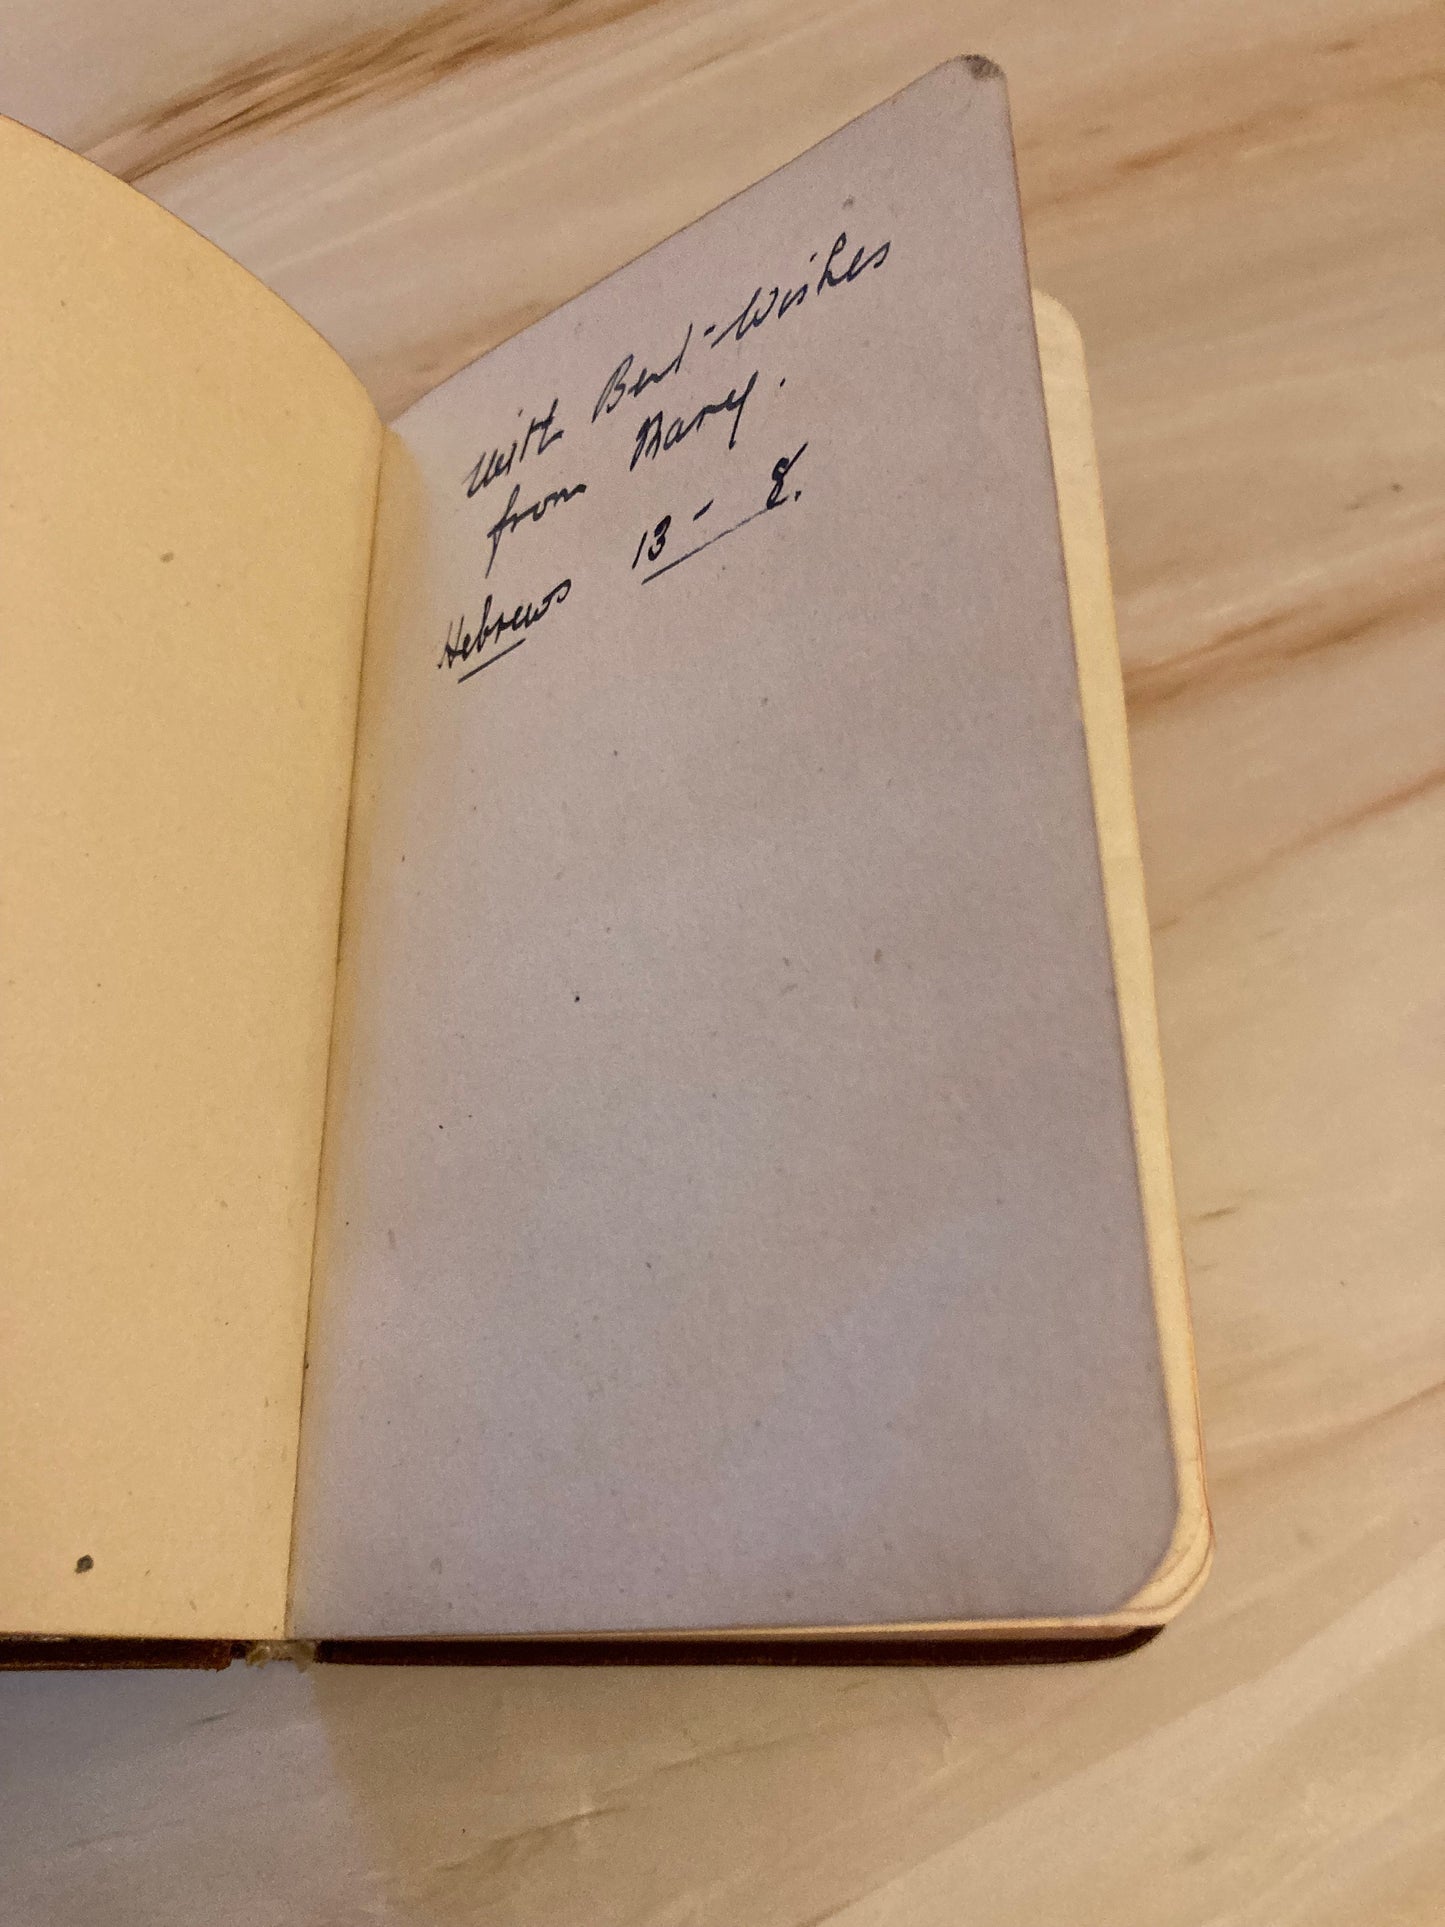 With Best Wishes
from Mary.
Hebrews 13 - 8.